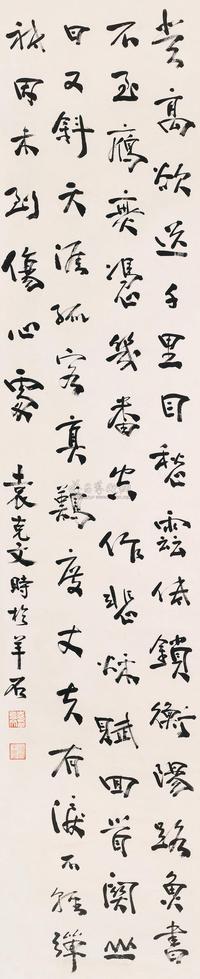 登高欲送千里目愁雲低鎖衡陽路魚書
不至鴈無憑幾番空作悲秋賦回首關山
日又斜天涯孤客真難度丈夫有淚不輕彈
祇因未到傷心處
袁克文時於羊石